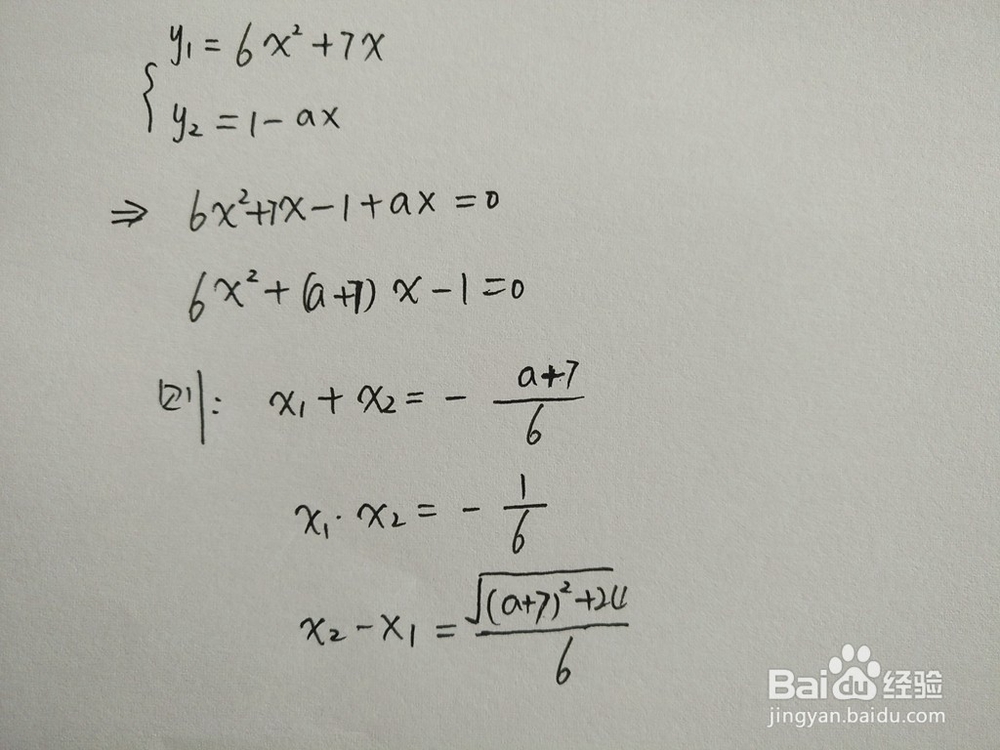 y₁ = 6x² + 7x
y₂ = 1 - ax
⇒ 6x² + 7x - 1 + ax = 0
6x² + (a+7) x - 1 = 0
则: x₁ + x₂ = - (a+7)/6
x₁ · x₂ = - 1/6
x₂ - x₁ = √((a+7)² + 24)/6
Baidu 经验
jingyan.baidu.com